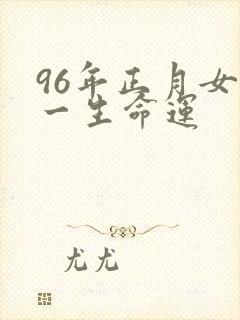 96年正月女
一生命运
尤尤